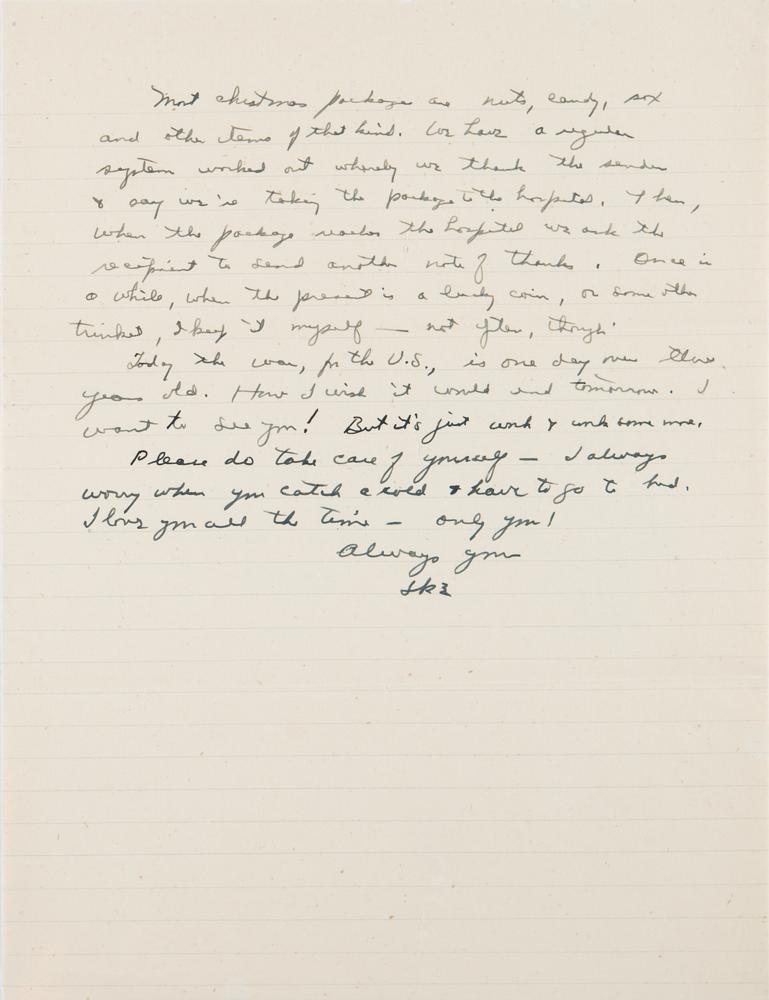 Most christmas packages are nuts, candy, sox
and other items of that kind. We have a regular
system worked out whereby we thank the sender
& say we're taking the package to the hospital. Then,
when the package reaches the hospital we ask the
recipient to send another note of thanks. Once in
a while, when the present is a lucky coin, or some other
trinket, I keep it myself — not often, though.
Today the war, for the U.S., is one day over three
years old. How I wish it would end tomorrow. I
want to see you! But it's just work & work some more.
Please do take care of yourself — I always
worry when you catch a cold & have to go to bed.
I love you all the time — only you!
Always your
Ike